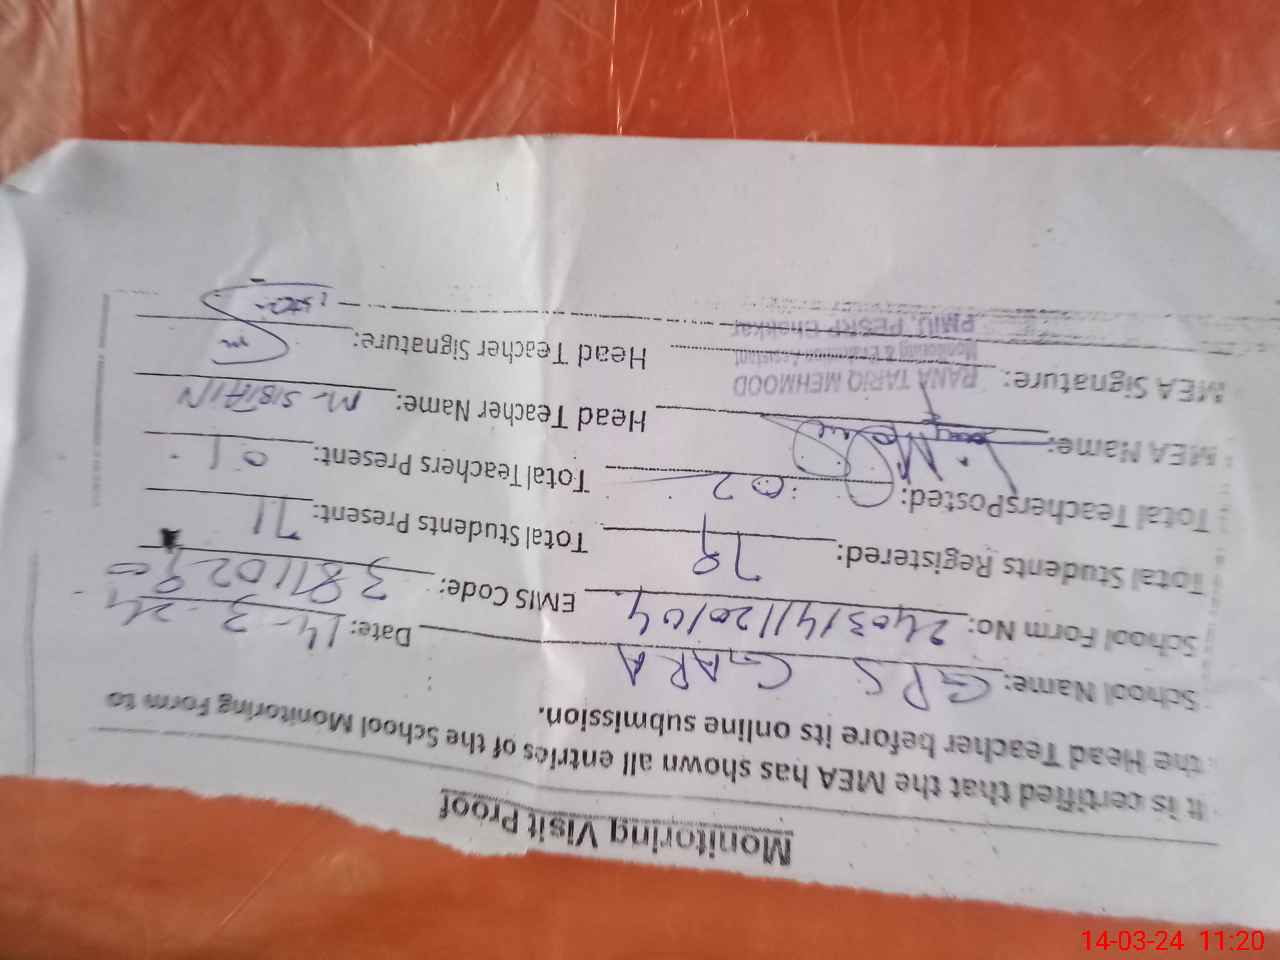 Monitoring Visit Proof
It is certified that the MEA has shown all entries of the School Monitoring Form to
the Head Teacher before its online submission.
School Name: GPS GARA Date: 14-3-24
School Form No: EMIS Code:
Total Students Registered: 79 Total Students Present: 71
Total TeachersPosted: 02 Total Teachers Present: 01
MEA Name: Head Teacher Name: M. SIBTAIN
MEA Signature: Head Teacher Signature:
RANA TARIQ MEHMOOD
Monitoring & Evaluation Assistant
PMIU, PESRP Bhakkar
14-03-24 11:20